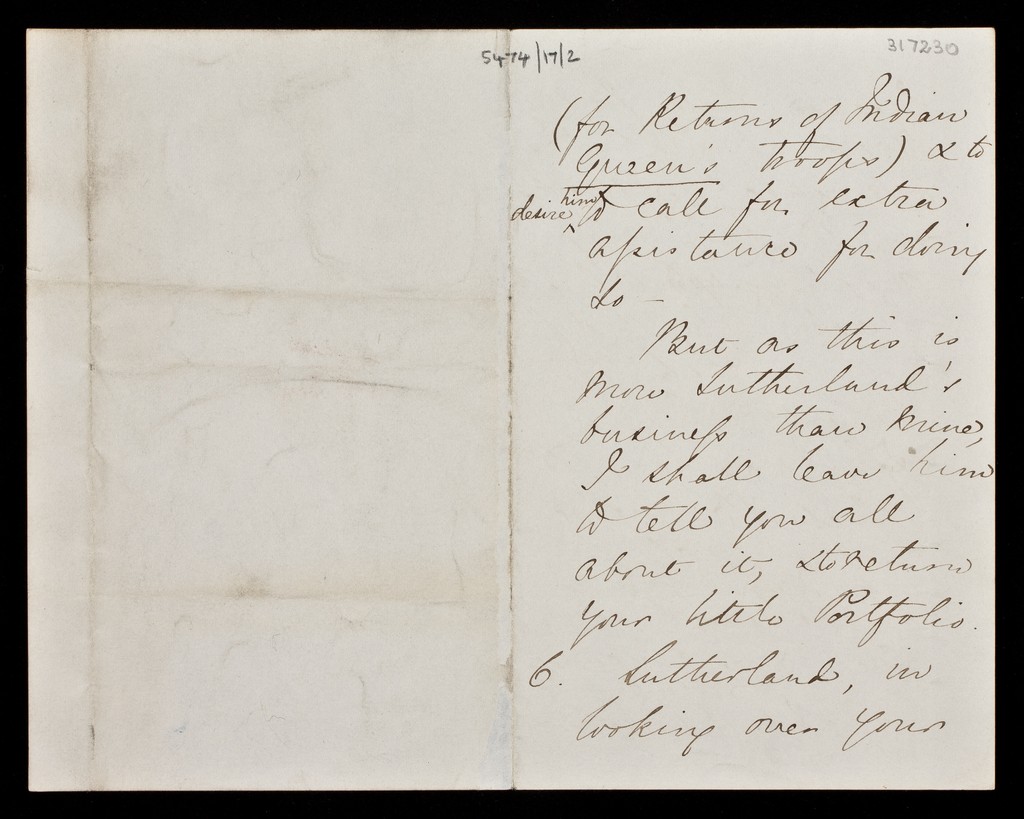 5474/17/2
317230
(for Returns of Indian
Queen's troops) & to
desire ^ him to call for extra
assistance for doing
so -
But as this is
more Sutherland's
business than mine,
I shall leave him
to tell you all
about it, & to return
your little Portfolio.
6. Sutherland, in
looking over your